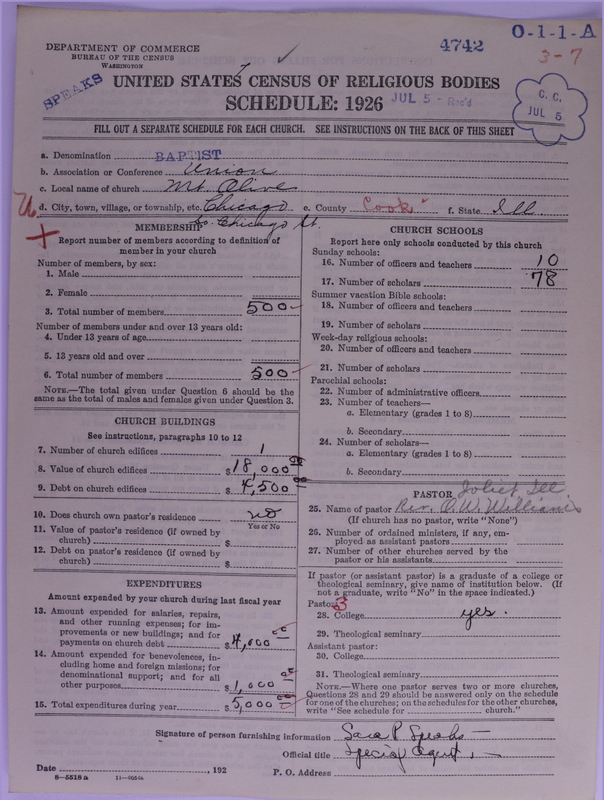 DEPARTMENT OF COMMERCE
BUREAU OF THE CENSUS
WASHINGTON
4742
O-1-1-A
3-7
SPEAKS
UNITED STATES CENSUS OF RELIGIOUS BODIES
SCHEDULE: 1926
JUL 5 - Rec'd
C. C.
JUL 5
FILL OUT A SEPARATE SCHEDULE FOR EACH CHURCH. SEE INSTRUCTIONS ON THE BACK OF THIS SHEET
a. Denomination BAPTIST
b. Association or Conference Union
c. Local name of church Mt. Olive
d. City, town, village, or township, etc. Chicago e. County Cook f. State Ill.
So. Chicago St.
MEMBERSHIP
Report number of members according to definition of
member in your church
Number of members, by sex:
1. Male
2. Female
3. Total number of members 500
Number of members under and over 13 years old:
4. Under 13 years of age
5. 13 years old and over
6. Total number of members 500
NOTE.—The total given under Question 6 should be the
same as the total of males and females given under Question 3.
CHURCH BUILDINGS
See instructions, paragraphs 10 to 12
7. Number of church edifices 1
8. Value of church edifices $18,000 00
9. Debt on church edifices $4,500 00
10. Does church own pastor's residence no
Yes or No
11. Value of pastor's residence (if owned by
church) $
12. Debt on pastor's residence (if owned by
church) $
EXPENDITURES
Amount expended by your church during last fiscal year
13. Amount expended for salaries, repairs,
and other running expenses; for im-
provements or new buildings; and for
payments on church debt $4,000 00
14. Amount expended for benevolences, in-
cluding home and foreign missions; for
denominational support; and for all
other purposes $1,000 00
15. Total expenditures during year $5,000 00
CHURCH SCHOOLS
Report here only schools conducted by this church
Sunday schools:
16. Number of officers and teachers 10
17. Number of scholars 78
Summer vacation Bible schools:
18. Number of officers and teachers
19. Number of scholars
Week-day religious schools:
20. Number of officers and teachers
21. Number of scholars
Parochial schools:
22. Number of administrative officers
23. Number of teachers—
a. Elementary (grades 1 to 8)
b. Secondary
24. Number of scholars—
a. Elementary (grades 1 to 8)
b. Secondary
PASTOR Joliet Ill
25. Name of pastor Rev. O. W. Williams
(If church has no pastor, write "None")
26. Number of ordained ministers, if any, em-
ployed as assistant pastors
27. Number of other churches served by the
pastor or his assistants
If pastor (or assistant pastor) is a graduate of a college or
theological seminary, give name of institution below. (If
not a graduate, write "No" in the space indicated.)
Pastor: 3
28. College yes.
29. Theological seminary
Assistant pastor:
30. College
31. Theological seminary
NOTE.—Where one pastor serves two or more churches,
Questions 28 and 29 should be answered only on the schedule
for one of the churches; on the schedules for the other churches,
write "See schedule for church."
Signature of person furnishing information Sara P Speaks
Official title Special Agent
Date , 192
P. O. Address
8-5518 a